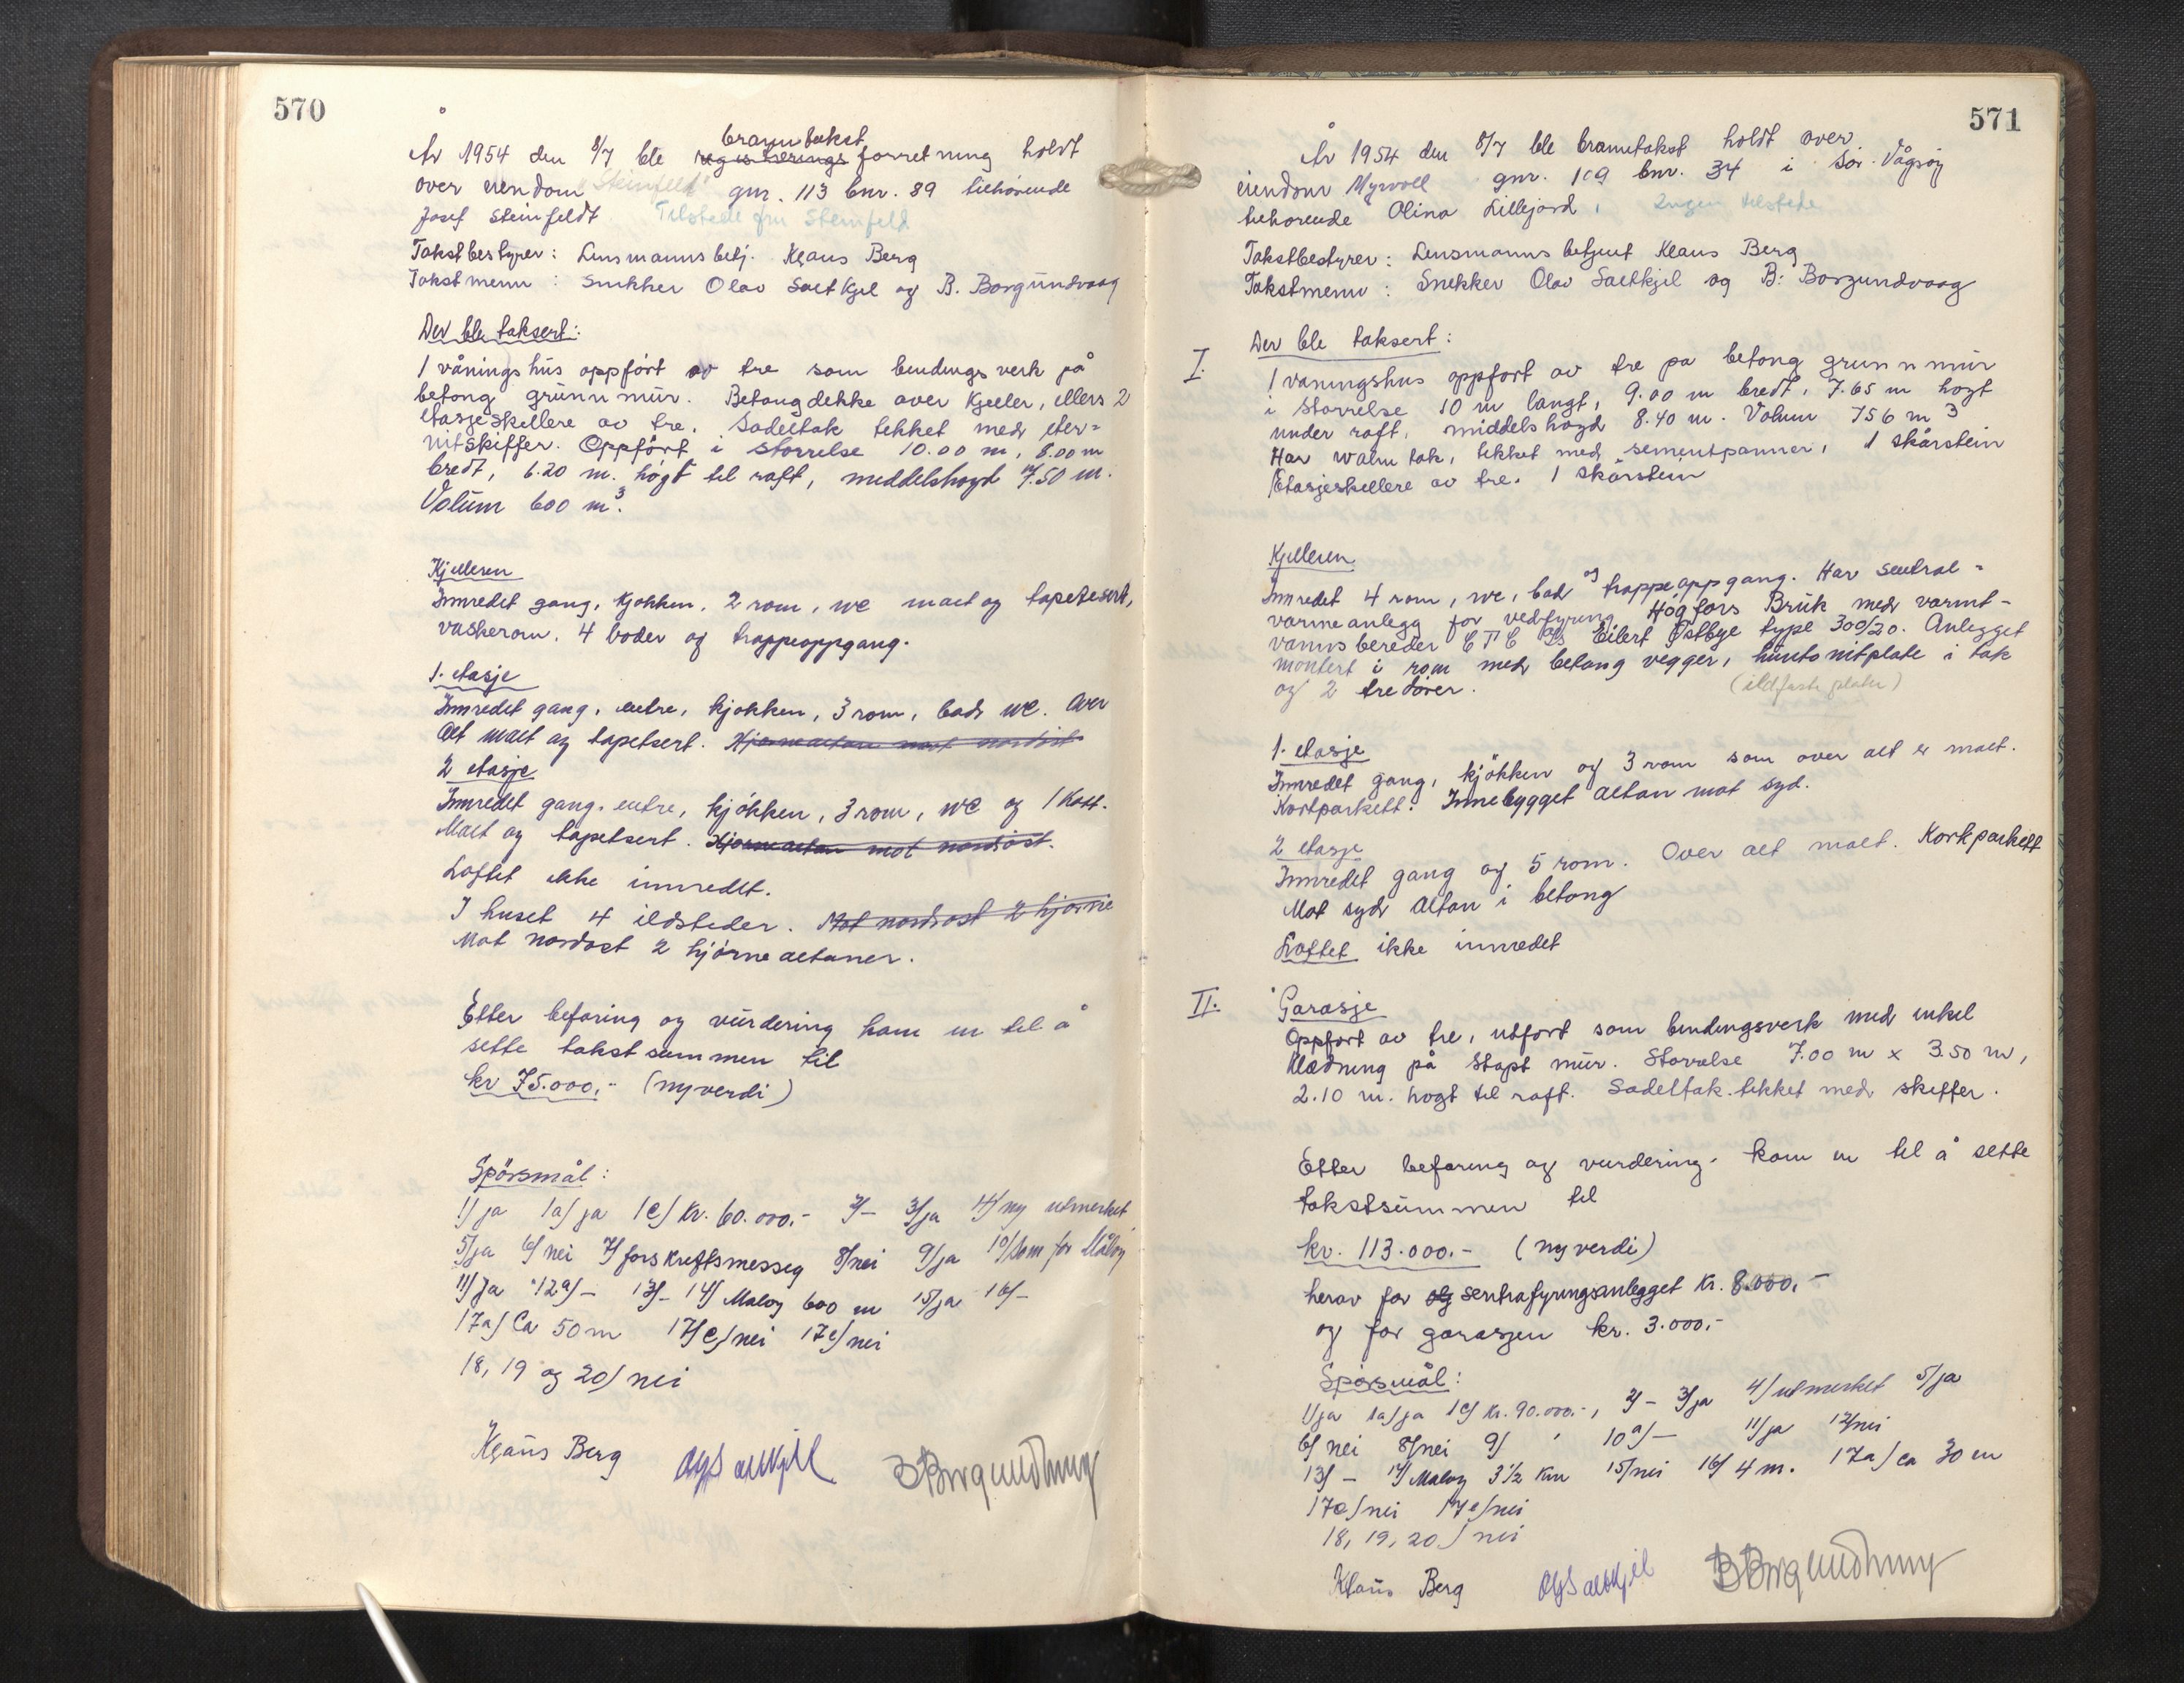 570
År 1954 den 8/7 ble registrerings branntakst forretning holdt
over eiendom "Steinfeldt" gnr. 113 bnr. 89 tilhörende
Josef Steinfeldt Tilstede fru Steinfeld
Takstbestyrer: Lensmannsbetj. Klaus Berg
Takstmenn: Snekker Olav Saltkjel og B. Borgundvaag
Der ble taksert:
1 våningshus oppfört av tre som bindingsverk på
betong grunnmur. Betongdekke over kjeller, ellers 2
etasjeskellere av tre. Sadeltak tekket med eter=
nitskiffer. Oppfört i störrelse 10.00 m, 8.00 m
bredt, 6.20 m. högt til raft, middelshøyd 7.50 m.
Volum 600 m³.
Kjelleren
Innredet gang, kjökken, 2 rom, wc malt og tapetsert,
vaskerom, 4 boder og trappeoppgang.
1. etasje
Innredet gang, entre, kjøkken, 3 rom, bad, wc. Over
alt malt og tapetsert. Hjørnealtan mot nordöst
2 etasje
Innredet gang, entre, kjökken, 3 rom, wc og 1 kott.
Malt og tapetsert. Hjørnealtan mot nordöst.
Loftet ikke innredet.
I huset 4 ildsteder. Mot nordöst 2 hjörne
Mot nordöst 2 hjörnealtaner.
Etter befaring og vurdering kom en til å
sette takstsummen til
kr 75.000,- (nyverdi)
Spörsmål:
1/ ja 1a/ ja 1c/ kr. 60.000.- 2/- 3/ja 4/ ny utmerket
5/ja 6/ nei 7/ forskreftsmessig 8/nei 9/ja 10/som for Måløy
11/ Ja 12a/ - 13/- 14/ Måloy 600 m 15/ja 16/-
17a/ Ca 50 m 17c/nei 17e/ nei
18, 19 og 20/ nei
Klaus Berg O Saltkjel B Borgundvaag
571
År 1954 den 8/7 ble branntakst holdt over
eiendom Myrvoll gnr. 109 bnr. 34 i Sör-Vågsöy
tilhørende Olina Lillejord, Ingen tilstede
Takstbestyrer: Lensmanns betjent Klaus Berg
Takstmenn: Snekker Olav Saltkjel og B. Borgundvaag
Der ble taksert:
I. 1 våningshus oppfört av tre på betong grunnmur
i störrelse 10 m langt, 9.00 m bredt, 7.65 m högt
under raft, middelshøyd 8.40 m. Volum 756 m³
Har valm tak, tekket med sementpanner, 1 skårstein
Etasjeskellere av tre. 1 skårstein
Kjelleren
Innredet 4 rom, wc, bad og trappeoppgang. Har sentral=
varmeanlegg for vedfyring Högfors Bruk med varmt-
vannsbereder CTC A/S Eilert Østbye type 300/20. Anlegget
montert i rom med betong vegger, huntonitplate i tak
og 2 tredörer. (ildfaste plater)
1. etasje
Innredet gang, kjökken og 3 rom som over alt er malt.
Korkparkett. Innebygget altan mot syd.
2 etasje
Innredet gang og 5 rom. Over alt malt. Korkparkett
Mot syd altan i betong
Loftet ikke innredet
II. Garasje
Oppfört av tre, utfört som bindingsverk med enkel
kledning på stöpt mur. Störrelse 7.00 m x 3.50 m,
2.10 m. högt til raft. Sadeltak tekket med skiffer.
Etter befaring og vurdering kom en til å sette
takstsummen til
kr. 113.000.- (nyverdi)
herav for og sentrafyringsanlegget kr. 8.000,-
og for garasjen kr. 3.000,-
Spörsmål:
1/ja 1a/ja 1c/ kr. 90.000.-, 2/- 3/ja 4/ utmerket 5/ja
6/ nei 8/nei 9/ 10a/- 11/ja 12/nei
13/ - 14/ Måloy 3 1/2 km 15/nei 16/ 4 m. 17a/ ca 30 m
17c/ nei 17e/nei
18, 19, 20/ nei
Klaus Berg O Saltkjel B Borgundvaag